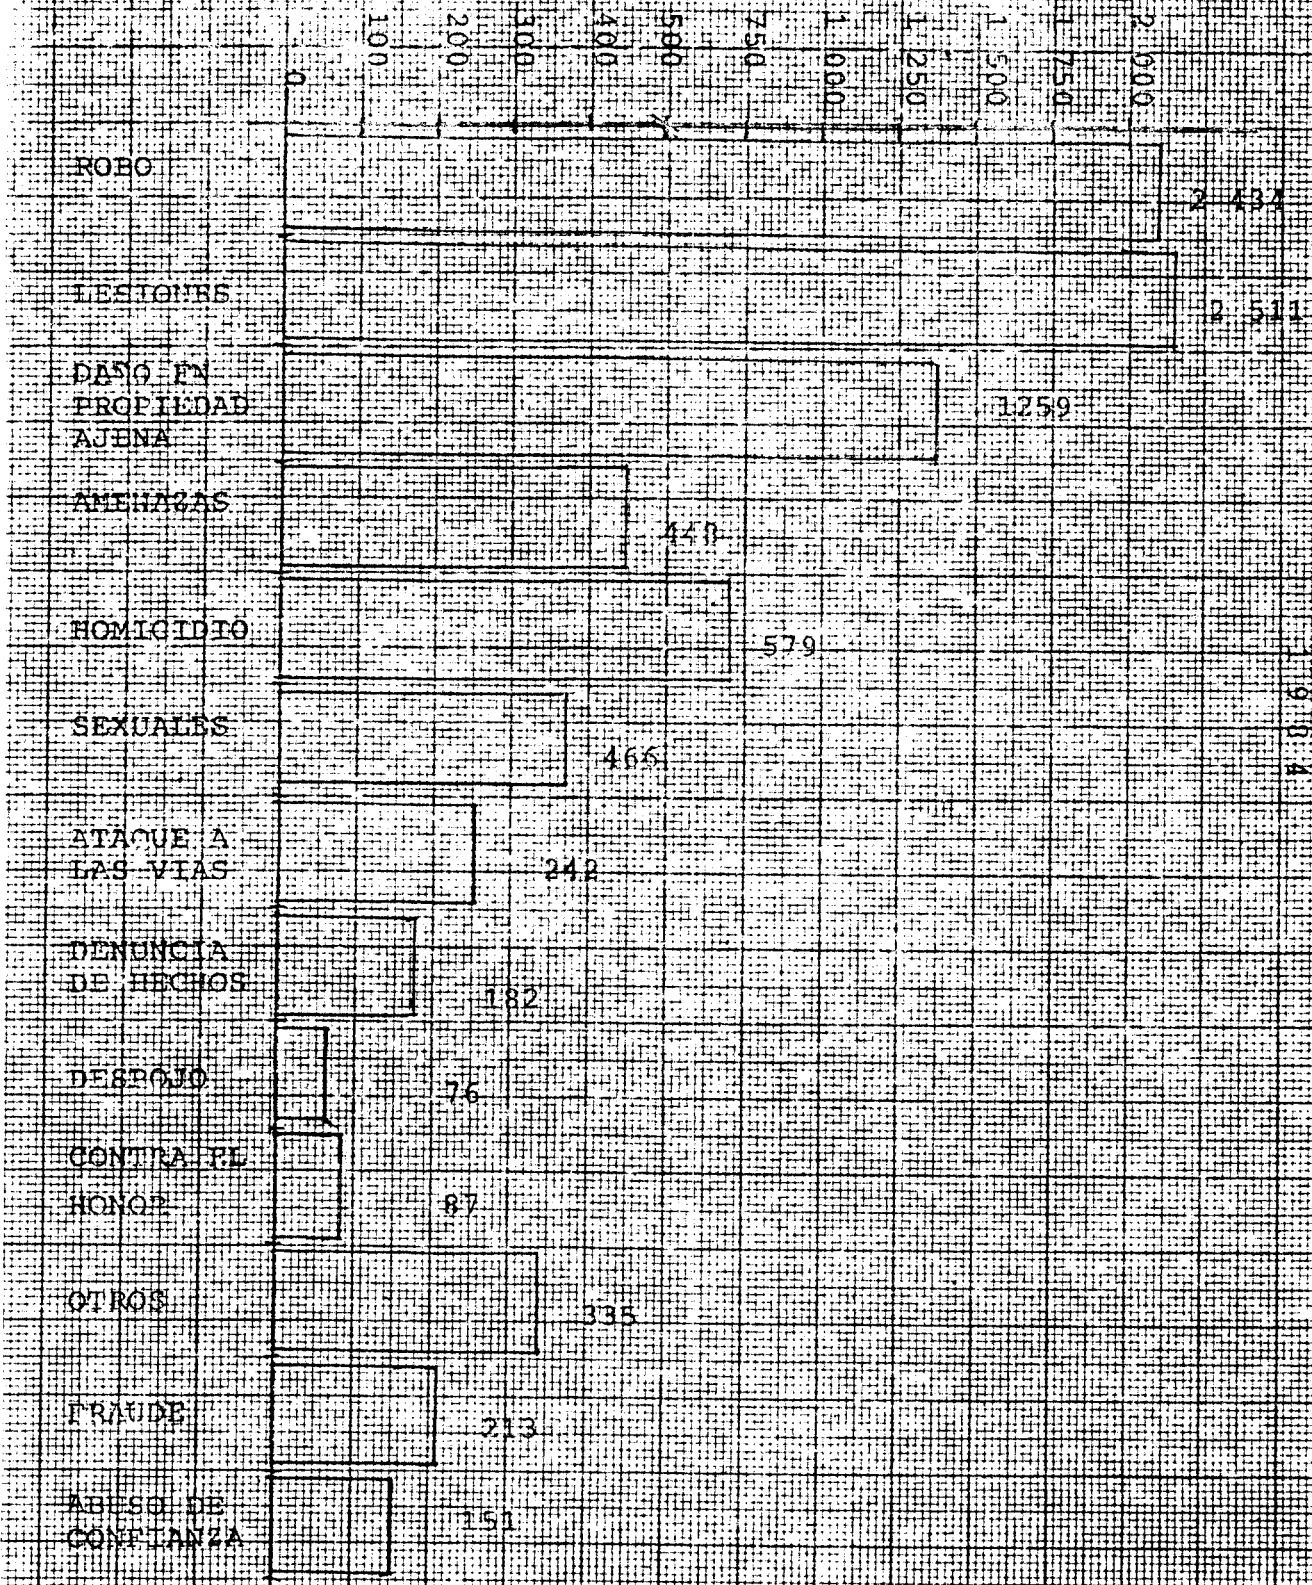 0
100
200
300
400
500
750
1 000
1 250
1 500
1 750
2 000
ROBO
2 434
LESIONES
2 511
DAÑO EN
PROPIEDAD
AJENA
1259
AMENAZAS
HOMICIDIO
579
SEXUALES
466
ATAQUE A
LAS VIAS
242
DENUNCIA
DE HECHOS
182
DESPOJO
76
CONTRA EL
HONOR
87
OTROS
335
FRAUDE
213
ABUSO DE
CONFIANZA
151
1984